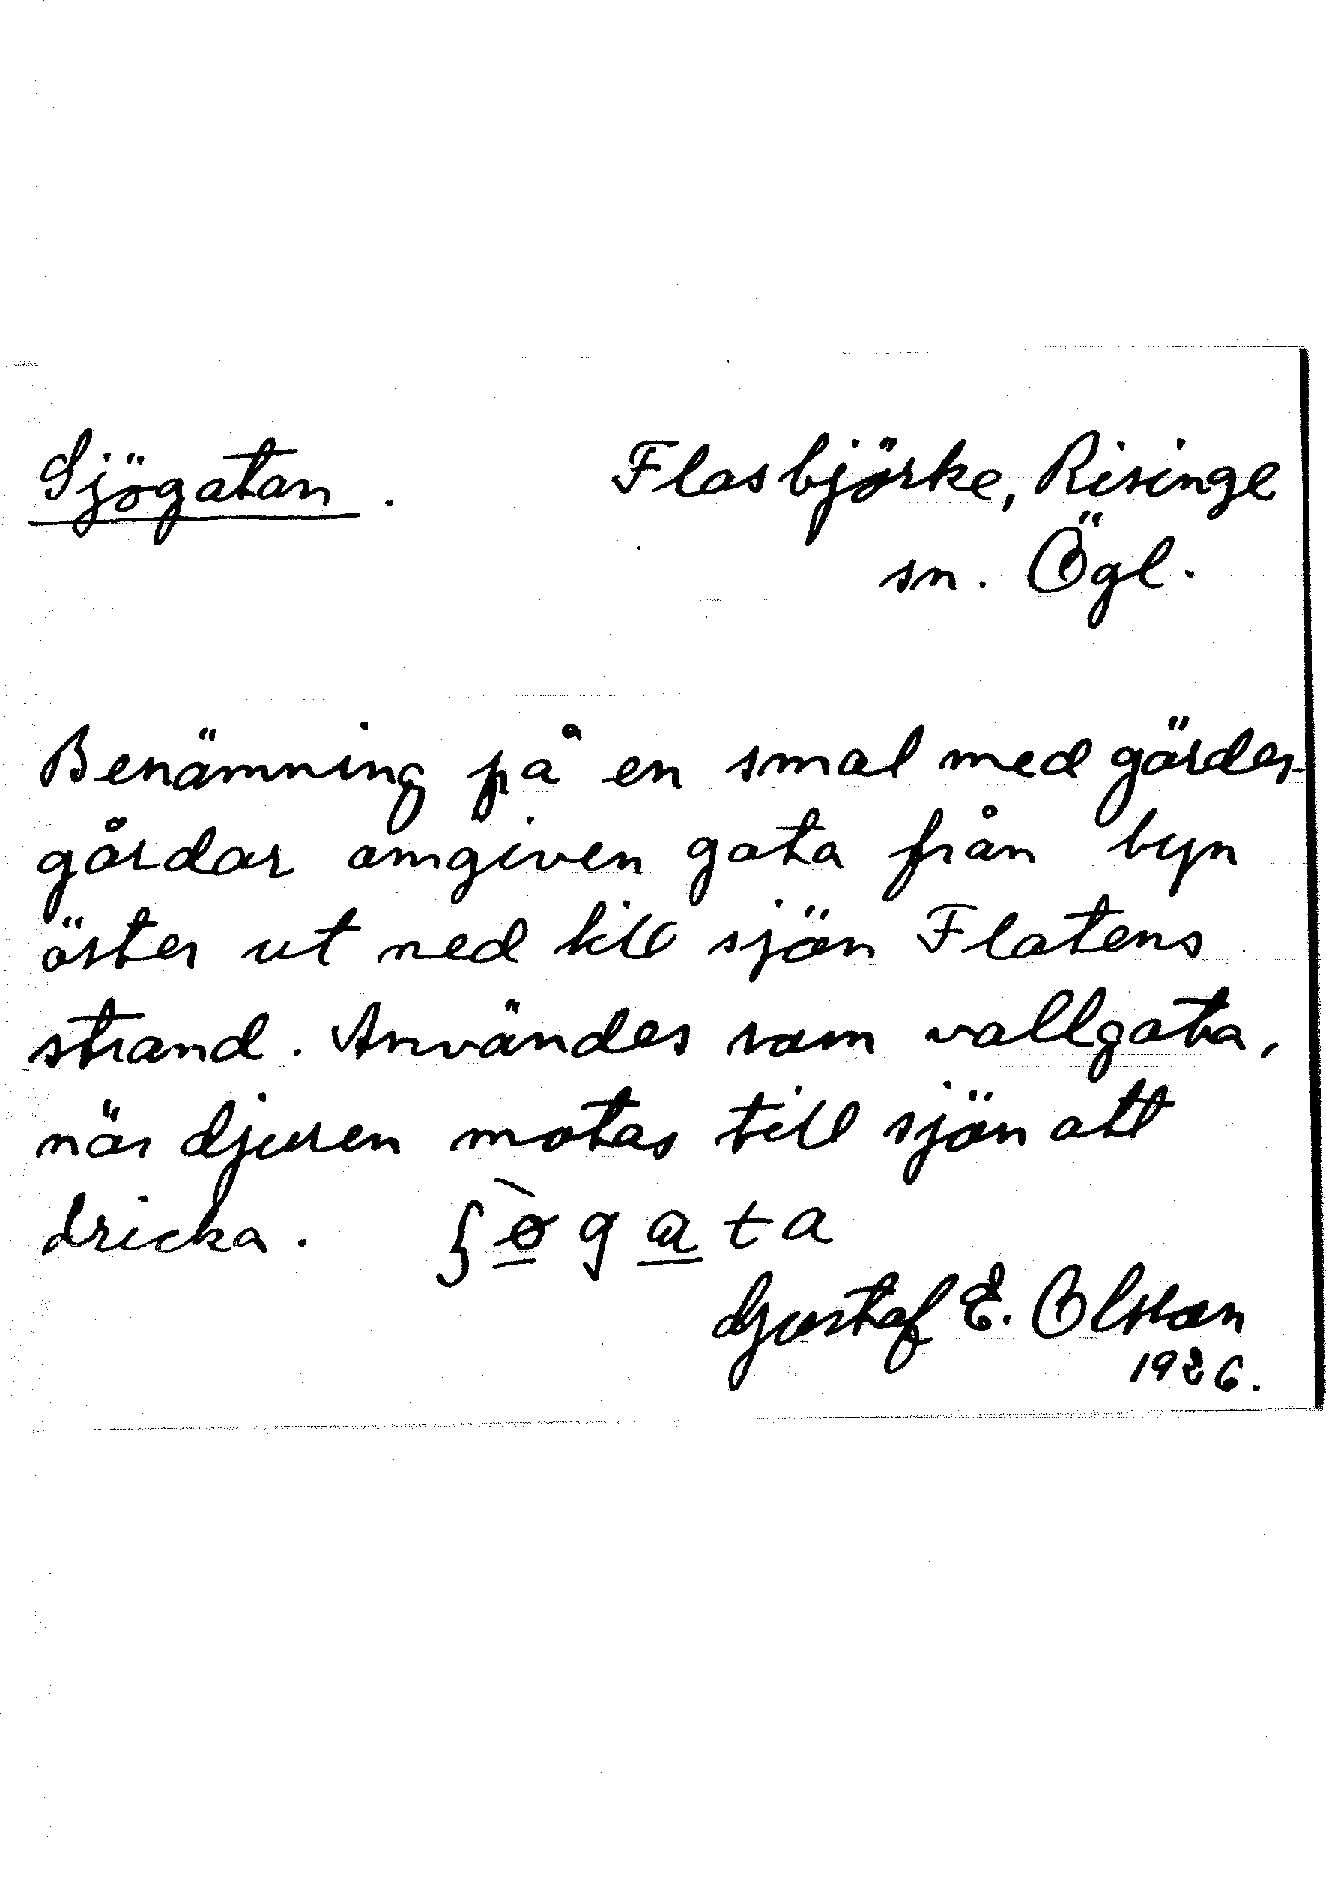 Sjögatan. Flasbjörke, Risinge
sn. Ögl.
Benämning på en smal med gärdes-
gårdar omgiven gata från byn
öster ut ned till sjön Flatens
strand. Användes som vallgata,
när djuren motas till sjön att
dricka.
Gustaf E. Olsson
1926.